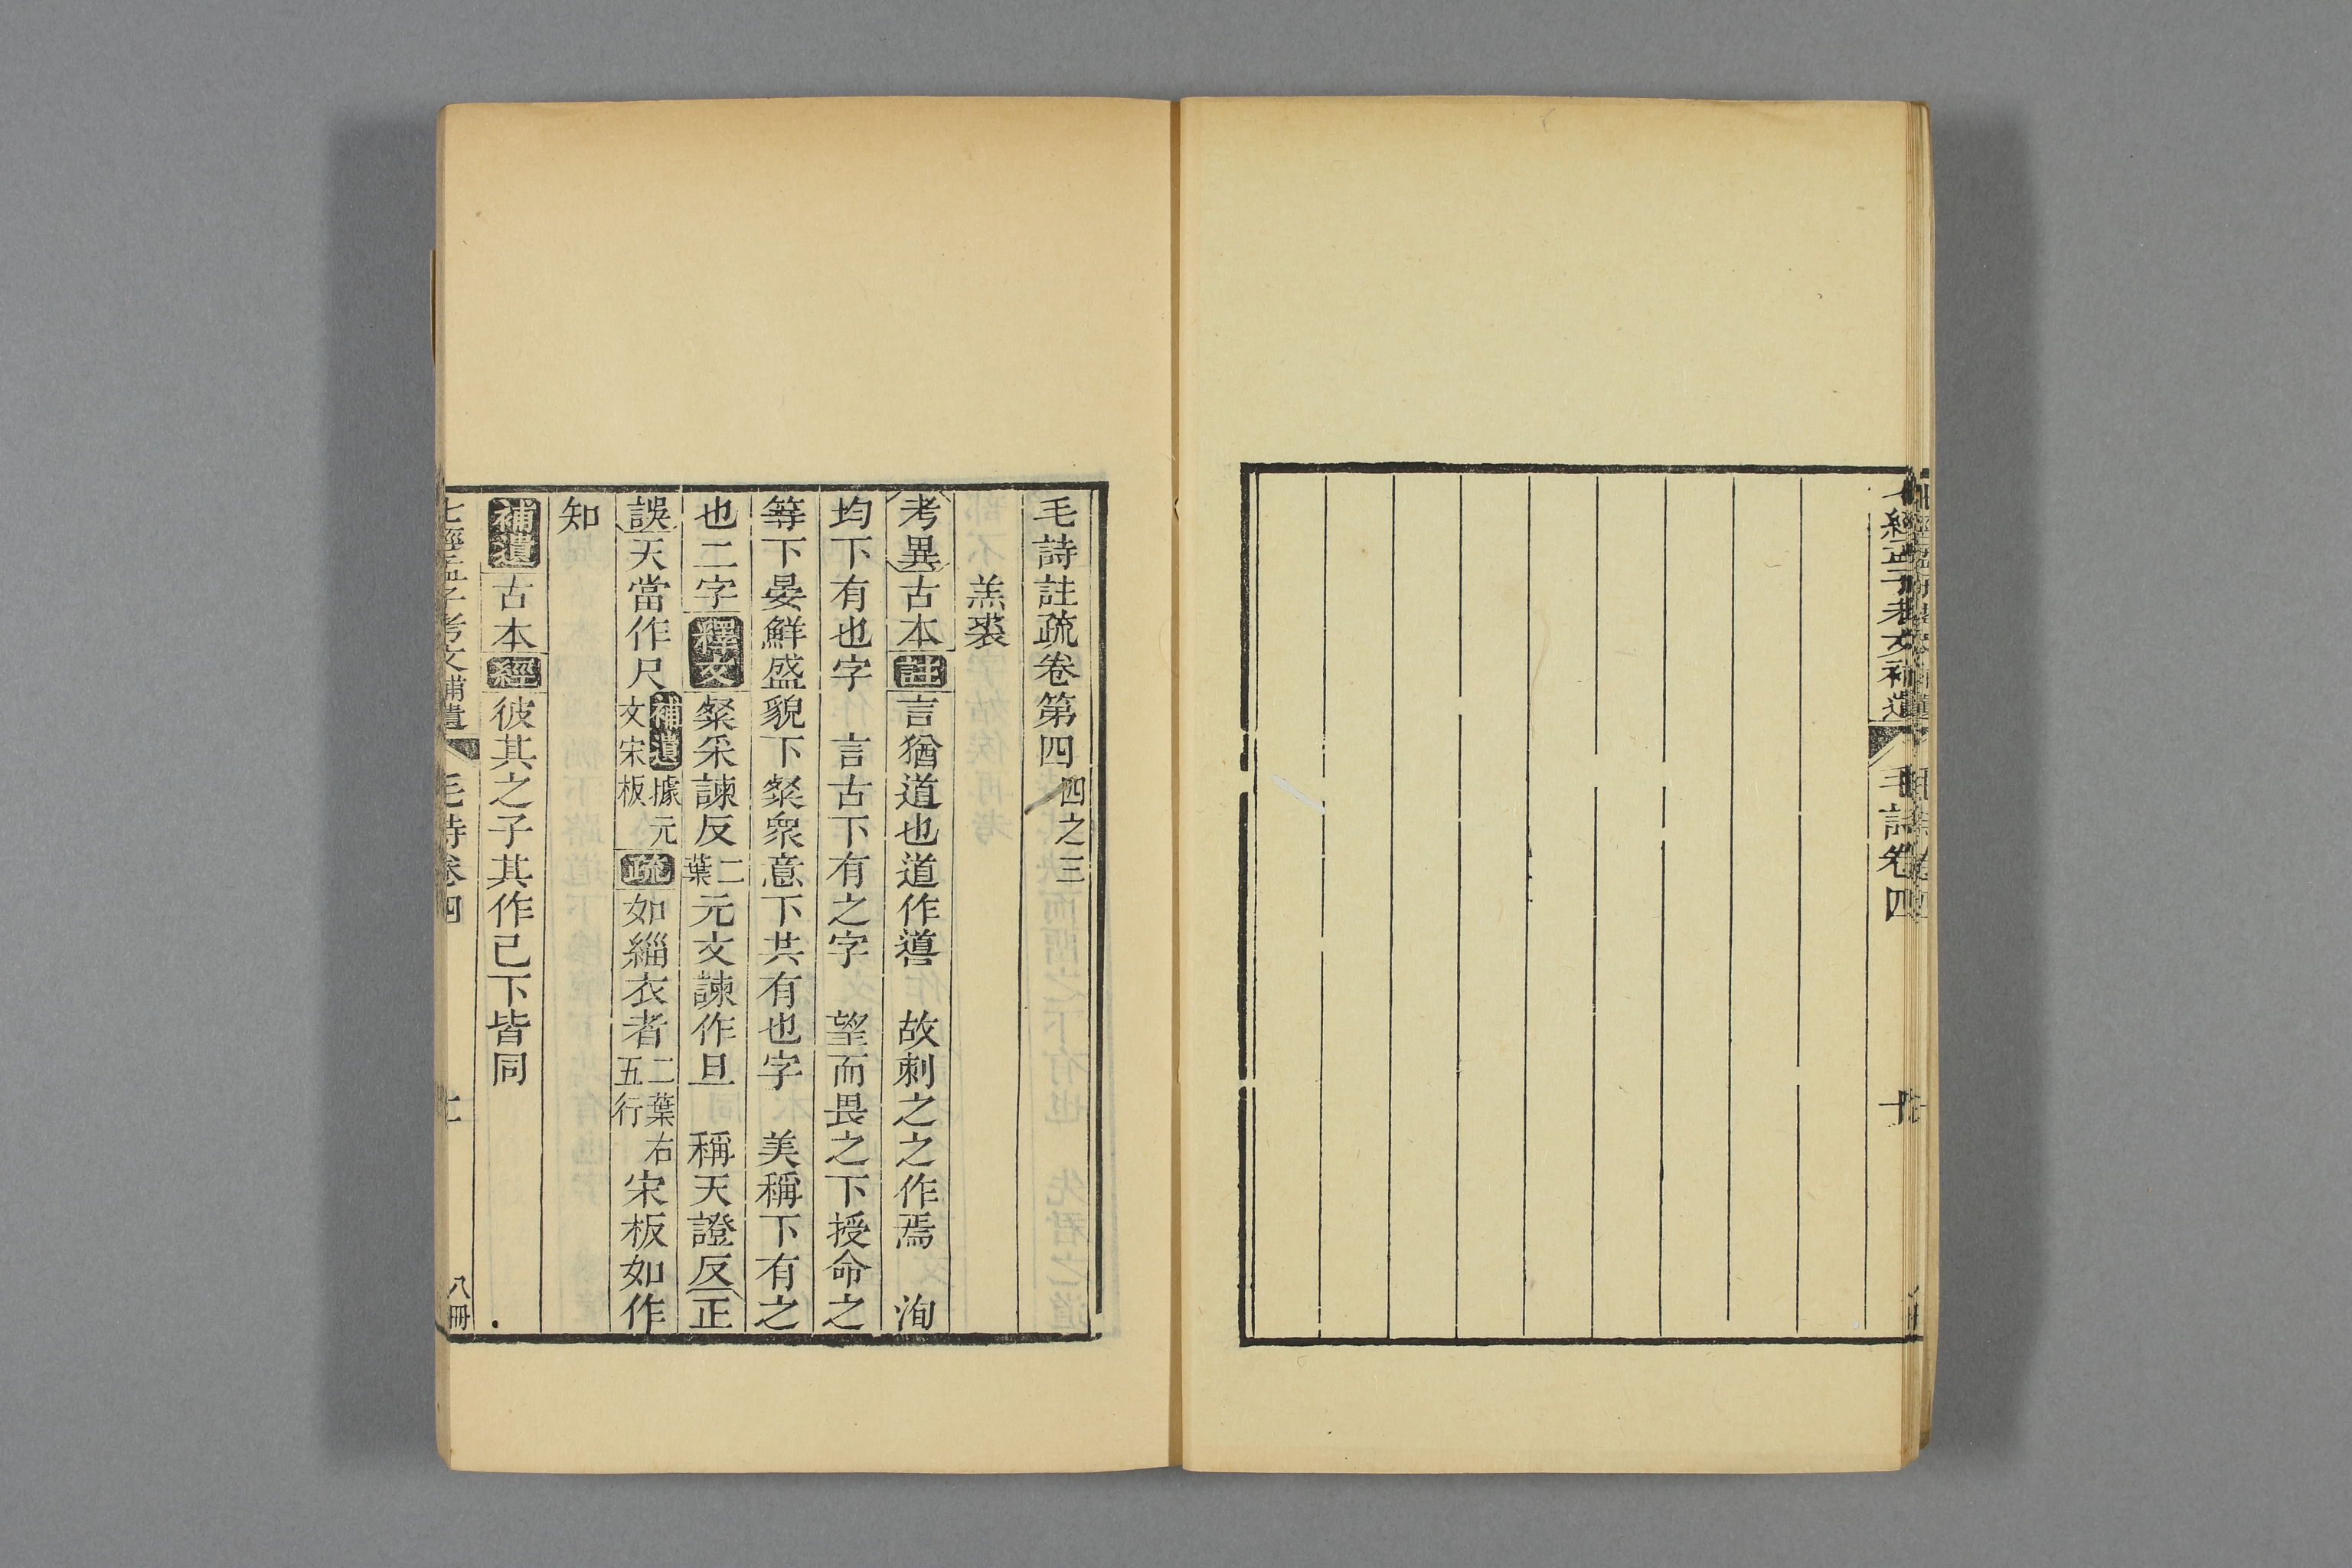 毛詩卷四
毛詩註疏卷第四 四之三
羔裘
考異古本註言猶道也道作噵 故刺之之作焉 洵
均下有也字 言古下有之字 望而畏之下授命之
等下晏鮮盛貌下粲衆意下共有也字 美稱下有之
也二字釋文粲采諫反二葉元文諫作旦 稱天證反正
誤天當作尺補遺據元文宋板疏如緇衣者二葉右五行宋板如作
知
補遺古本經彼其之子其作己下皆同
七經孟子考文補遺 毛詩卷四 八冊